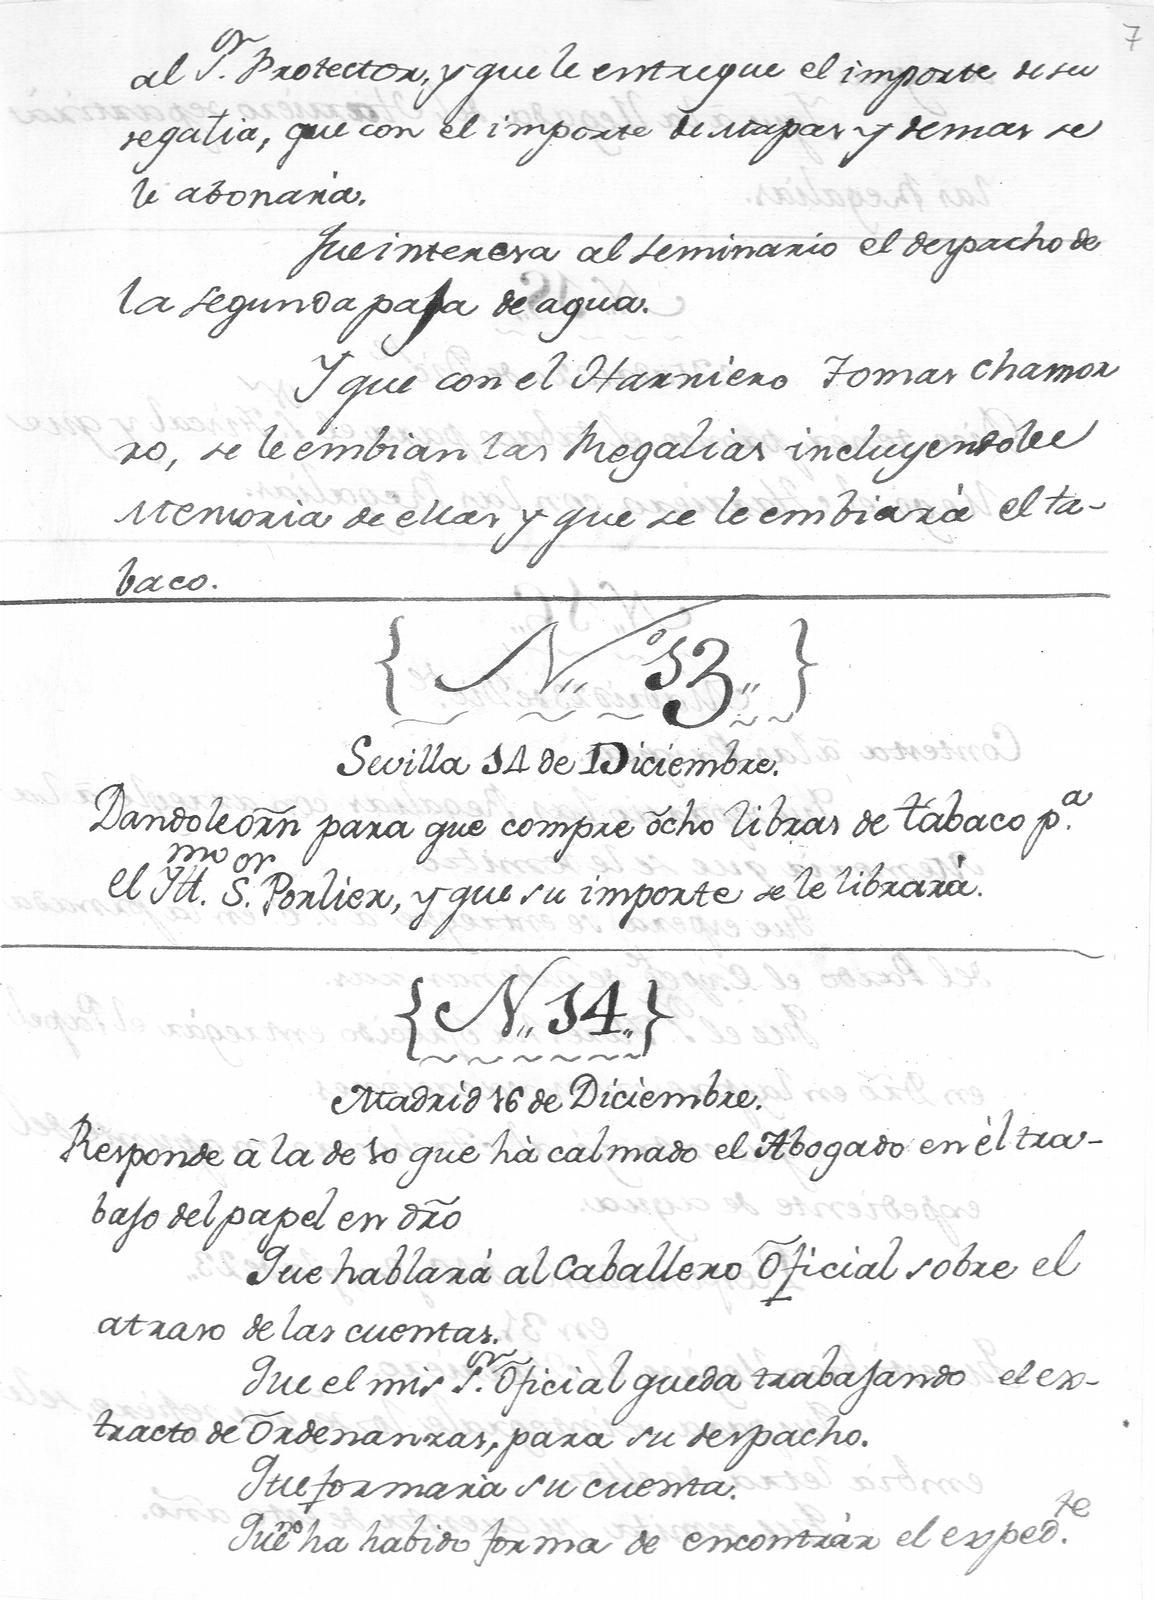 7
al S.or Protector, y que le entregue el importe de su
regalia, que con el importe de Mapas y demas se
le abonará.
Que interesa al seminario el despacho de
la segunda paja de agua.
Y que con el Harriero Tomas Chamor
ro, se le embian las Regalias incluyendole
Memoria de ellas y que se le embiará el ta-
baco.
{ N.º 13,, }
Sevilla 14 de Diciembre.
Dandole orñ para que compre ocho libras de tabaco p.a
el Ill.mo S.or Porlier, y que su importe se le librará.
{ N,, 14,, }
Madrid 16 de Diciembre.
Responde à la de 10 que hà calmado el Abogado en él tra-
bajo del papel en dr̃o
Que hablará al Caballero Oficial sobre el
atraso de las cuentas.
Que el mis S.or Oficial queda trabajando el ex-
tracto de Ordenanzas, para su despacho.
Que formará su cuenta.
Que no ha habido forma de encontràr el exped.te